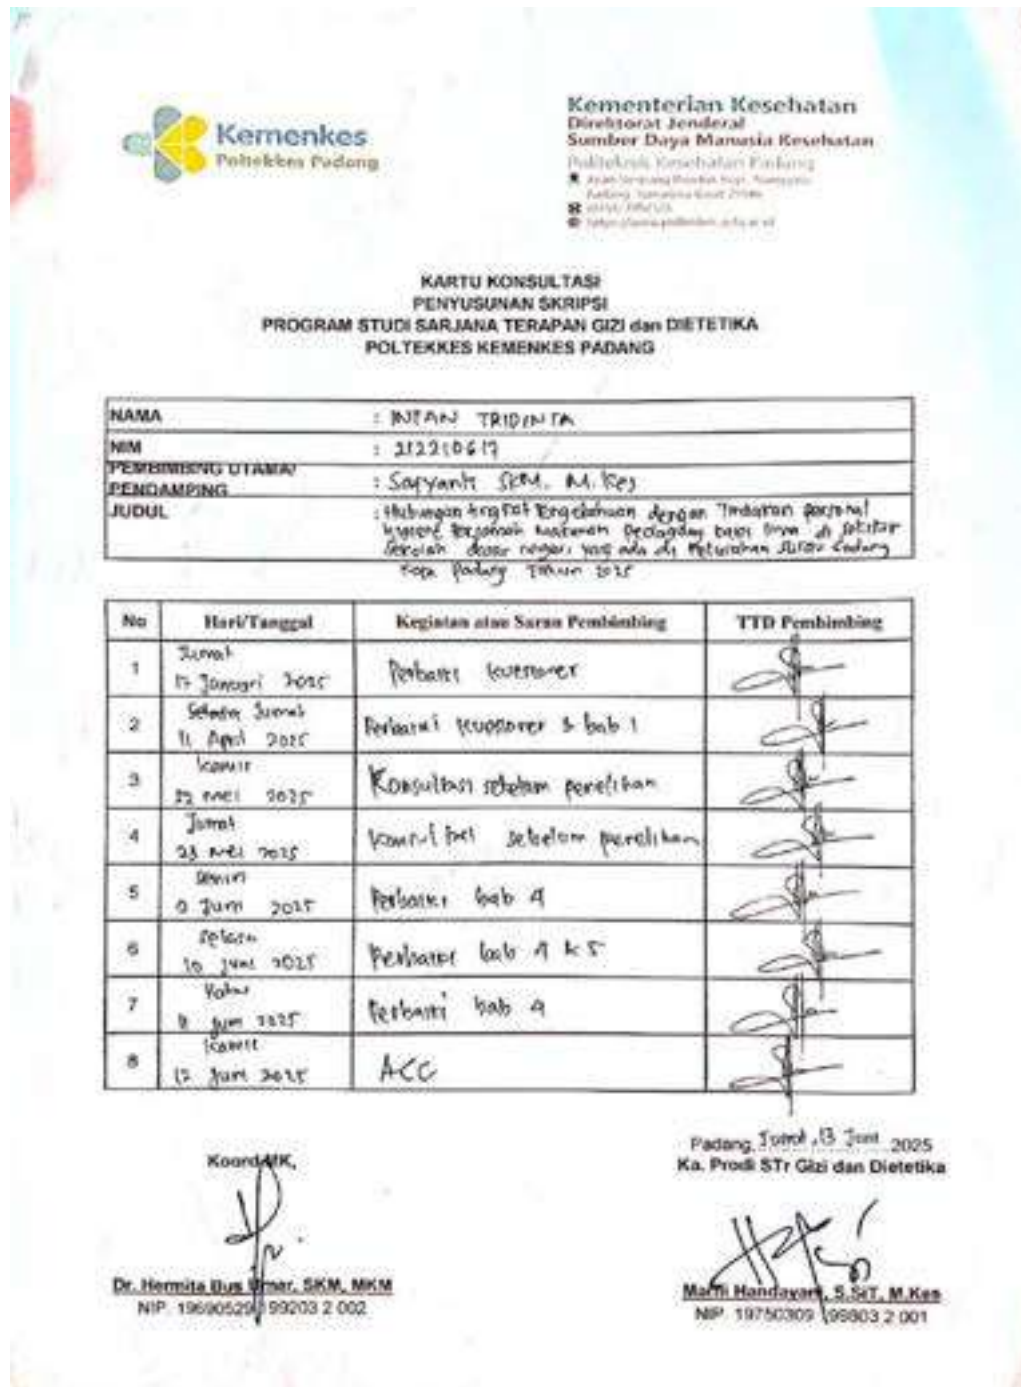 Kemenkes
Poltekkes Padang
Kementerian Kesehatan
Direktorat Jenderal
Sumber Daya Manusia Kesehatan
Politeknik Kesehatan Padang
KARTU KONSULTASI
PENYUSUNAN SKRIPSI
PROGRAM STUDI SARJANA TERAPAN GIZI dan DIETETIKA
POLTEKKES KEMENKES PADANG
NAMA : INTAN TRIDINTA
NIM : 212210617
PEMBIMBING UTAMA/
PENDAMPING : SKM, M.Kes
JUDUL : Hubungan Tingkat Pengetahuan dengan Tindakan personal
hygiene Penjamah Makanan Pedagang di sekitar
Sekolah dasar negeri yang ada di Kelurahan Surau Gadang
Kota Padang Tahun 2025
No Hari/Tanggal Kegiatan atau Saran Pembimbing TTD Pembimbing
1 Jumat
17 Januari 2025 Perbaiki kuesioner
2 Jumat
11 April 2025 Perbaiki kuesioner & bab 1
3 Kamis
22 mei 2025 Konsultasi sebelum penelitian
4 Jumat
23 Mei 2025 sebelum penelitian
5 Senin
9 Juni 2025 Perbaiki bab 4
6 Selasa
10 Juni 2025 Perbaiki bab 4 & 5
7 Rabu
Juni 2025 Perbaiki bab 4
8 Kamis
12 Juni 2025 ACC
Padang, Jumat, 13 Juni 2025
Koord MK,
Ka. Prodi STr Gizi dan Dietetika
Dr. Hermita Bus Umar, SKM, MKM
NIP 19690529 199203 2 002
Marni Handayani, S.SiT, M.Kes
NIP 19750309 199803 2 001